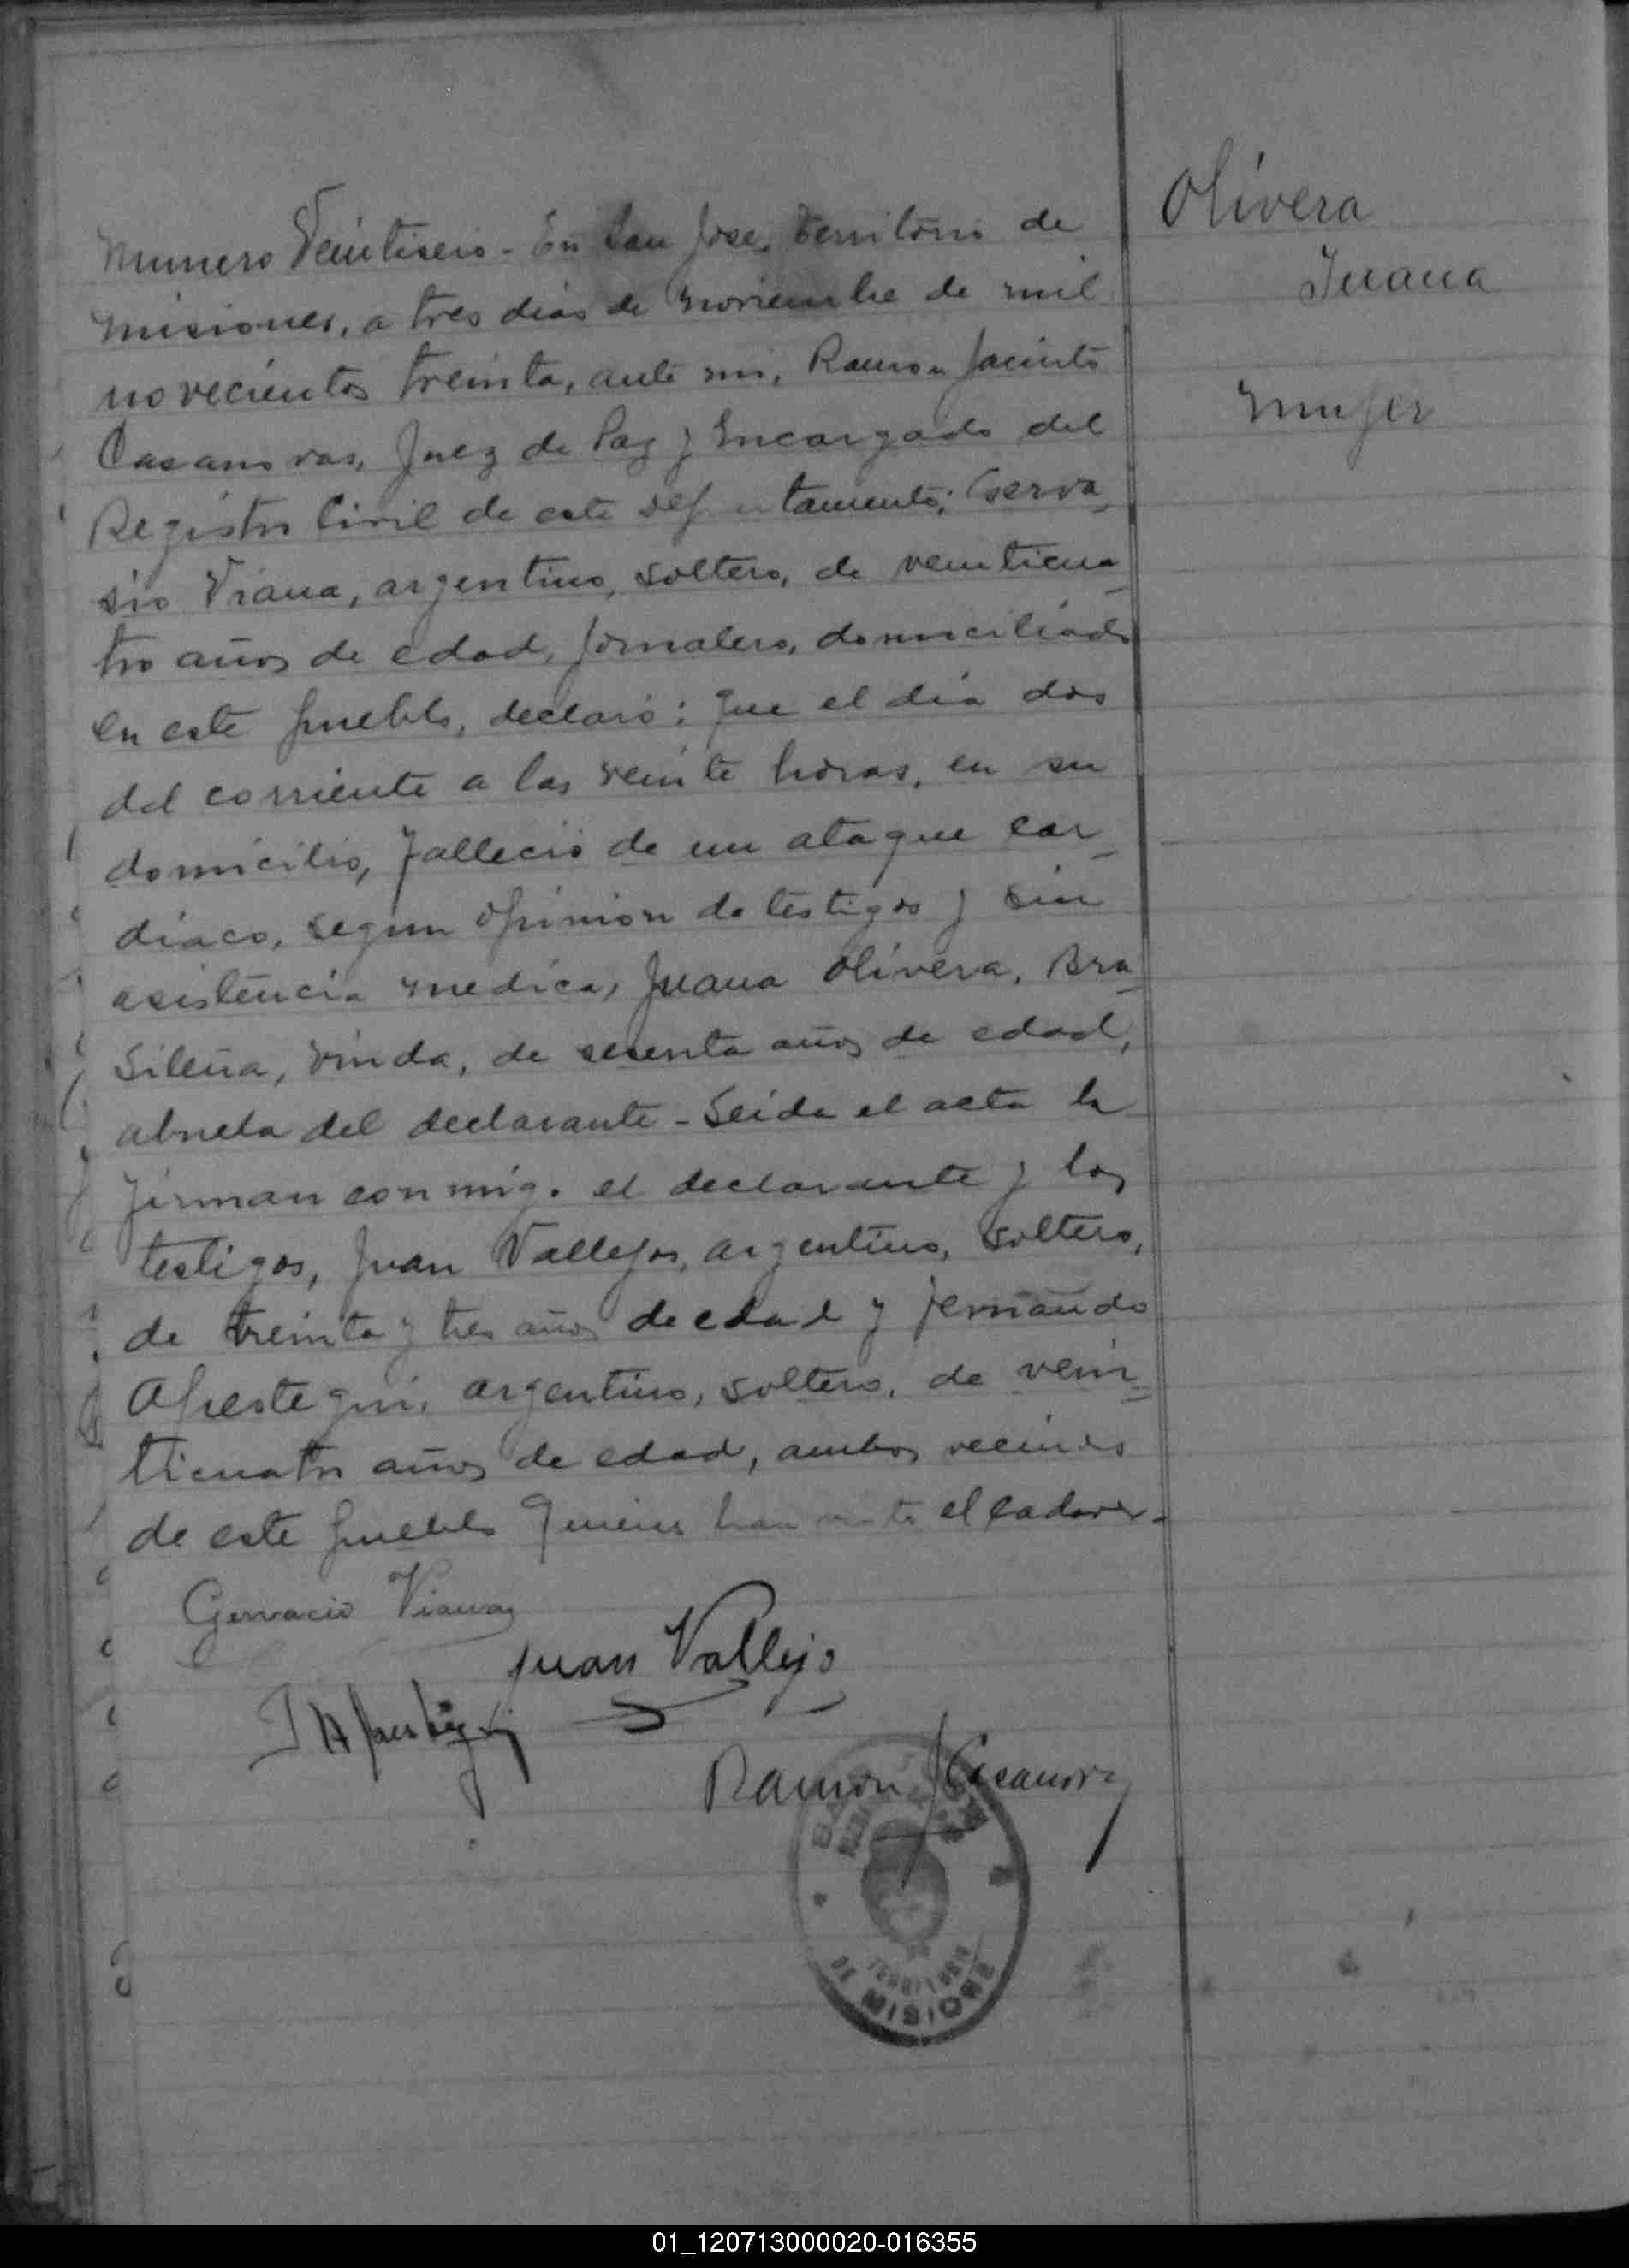 Numero Veintiseis - En San Jose, Territorio de
Misiones, a tres dias de Noviembre de mil
novecientos treinta, ante mi, Ramon Jacinto
Casanovas, Juez de Paz y Encargado del
Registro Civil de este departamento; Gerva
sio Viana, argentino, soltero, de veinticua
tro años de edad, jornalero, domiciliado
en este pueblo, declaró: Que el dia dos
del corriente a las veinte horas, en su
domicilio, fallecio de un ataque car
diaco, segun opinion de testigos y sin
asistencia medica, Juana Olivera, Bra
sileña, viuda, de sesenta años de edad,
abuela del declarante - Leida el acta la
firman conmigo. el declarante y los
testigos, Juan Vallejos, argentino, soltero,
de treinta y tres años de edad y Fernando
Apestegui, argentino, soltero, de vein
ticuatro años de edad, ambos vecinos
de este pueblo quienes han visto el cadaver.
Gervacio Viana
Juan Vallejo
Ramon J Casanova
TERRITORIO
DE MISIONES
Olivera
Juana
Mujer
01_120713000020-016355